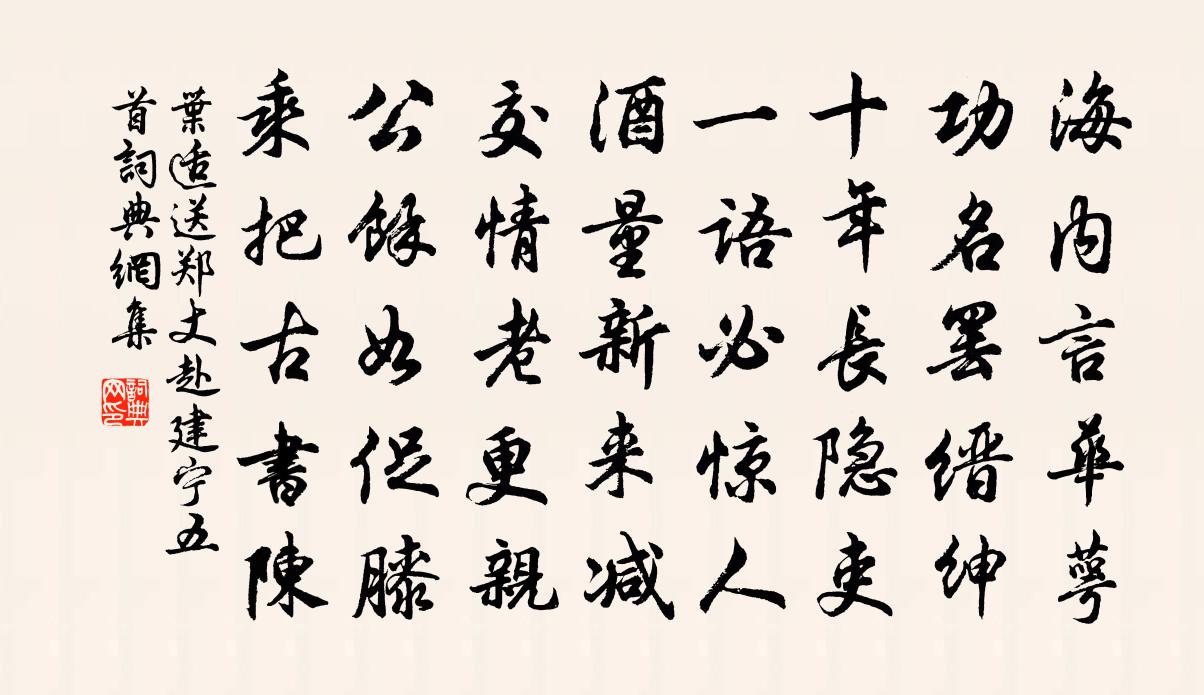 海内言華萼
功名罢缙绅
十年長隐吏
一語必惊人
酒量新来减
交情老更親
公餘如促膝
乘把古書陳
葉适送郑丈赴建宁五
首詞典網集
詞典
网印